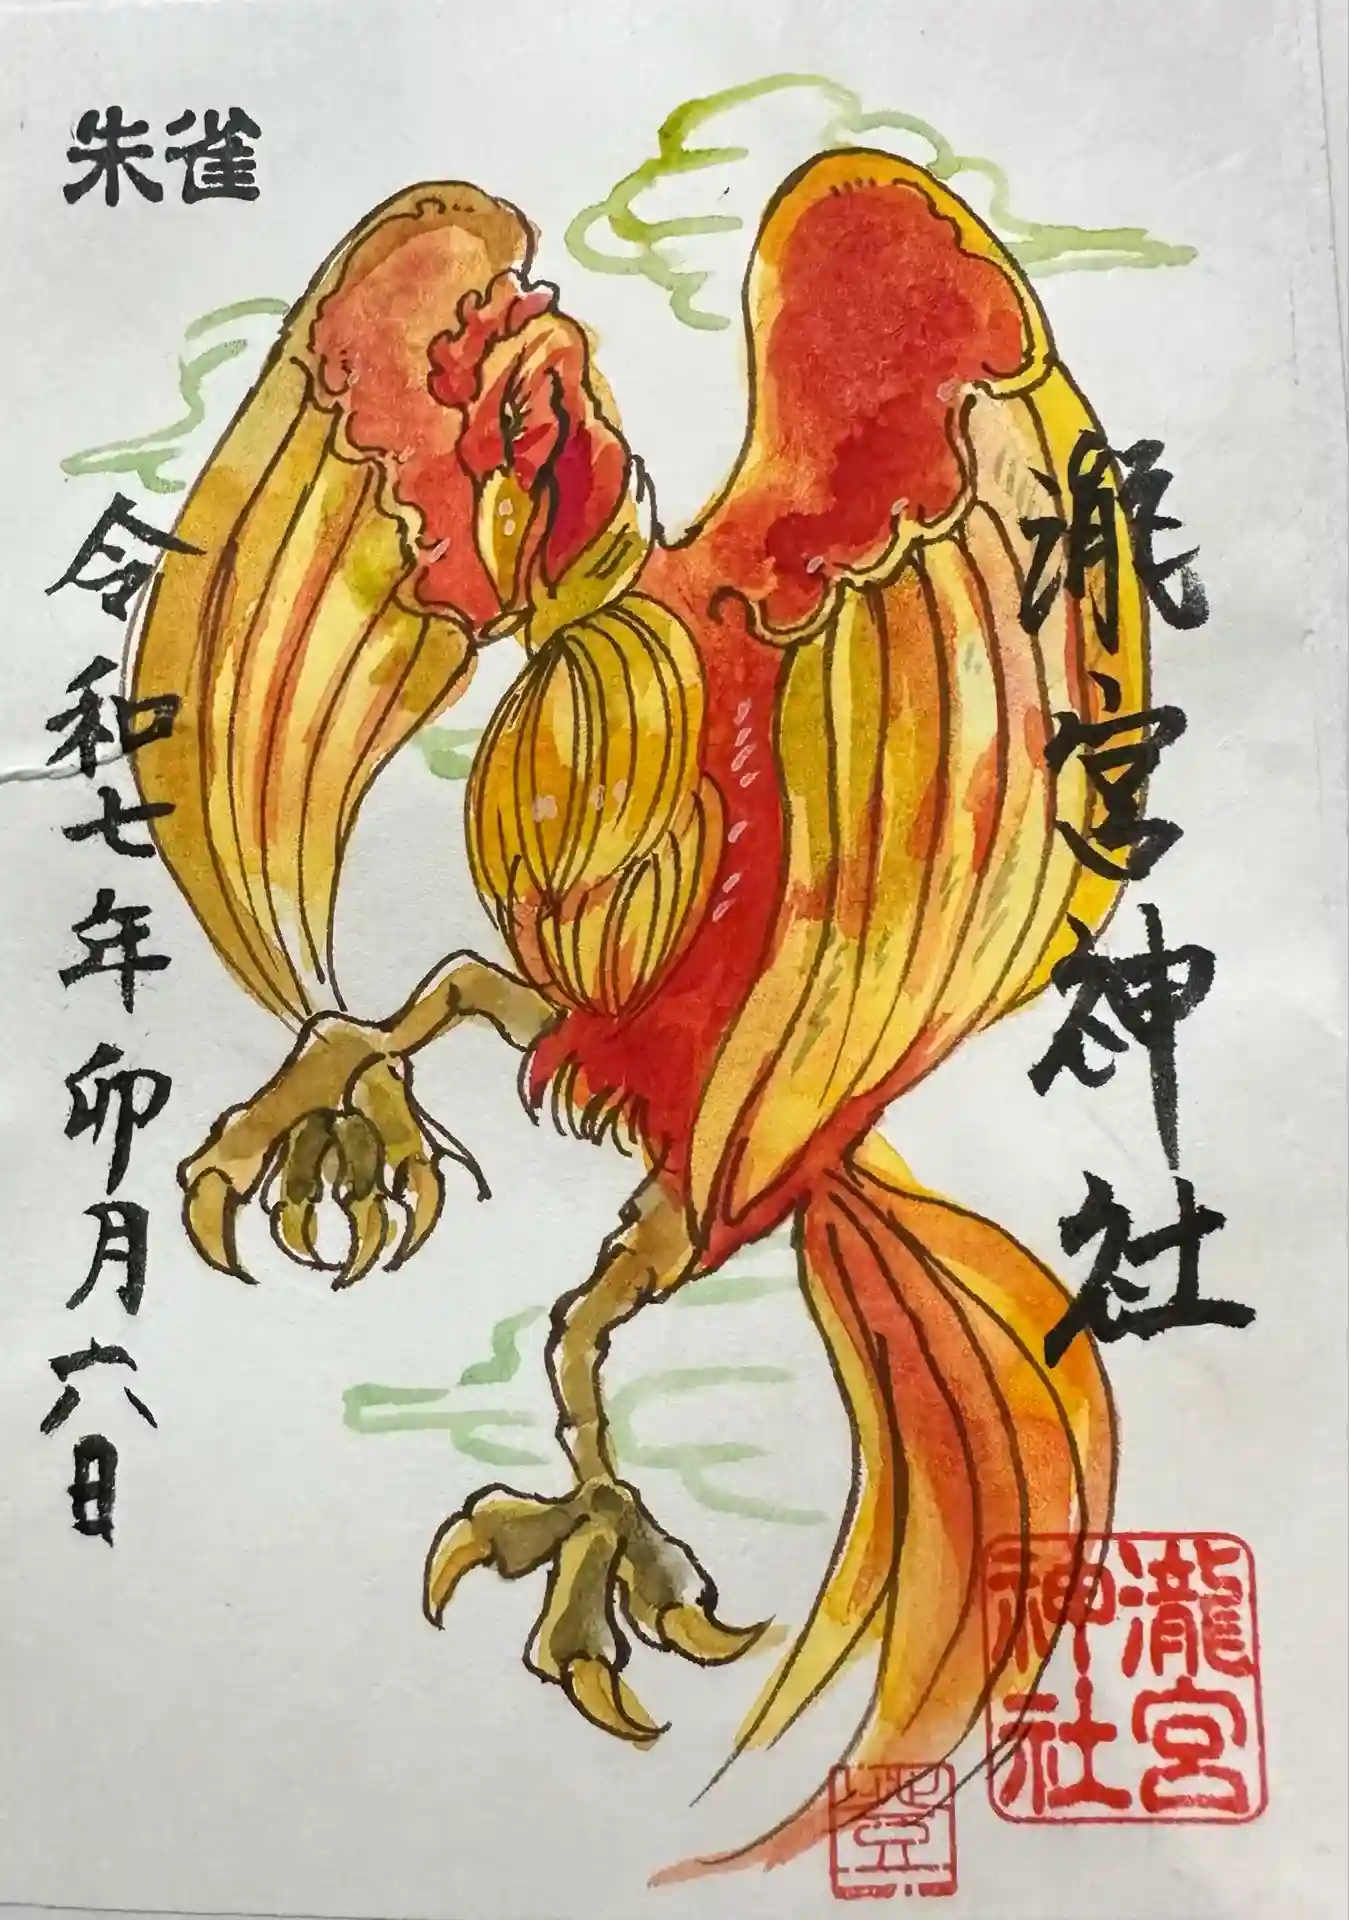 朱雀
瀧宮神社
令和七年卯月六日
瀧宮
神社